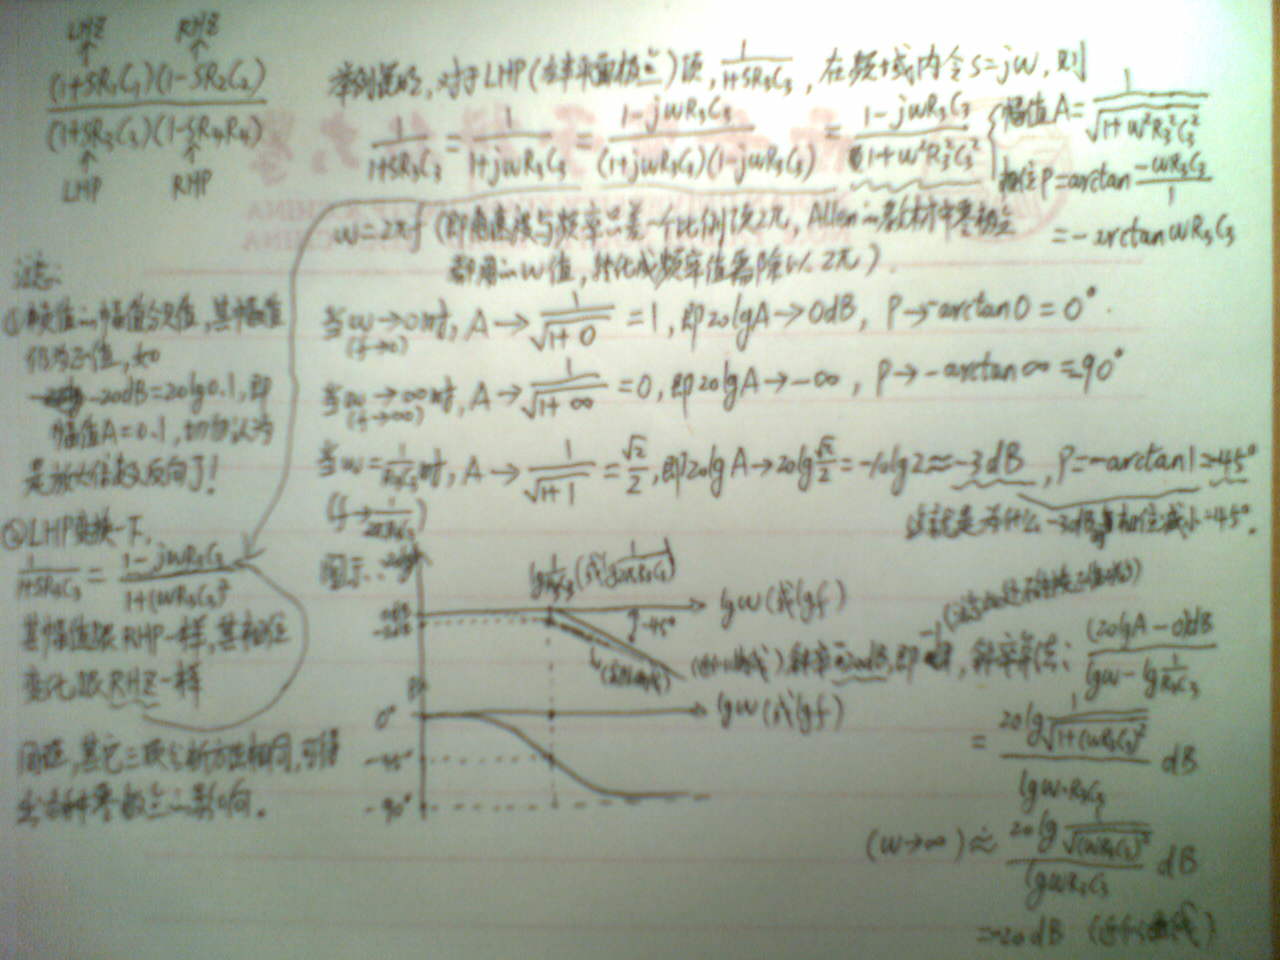 LHZ RHZ
(1+SR₁C₁)(1-SR₂C₂)
(1+SR₃C₃)(1-SR₄R₄)
LHP RHP
举例说明，对于LHP(左半平面极点)项，1/(1+SR₃C₃)，在频域内令s=jw，则
1/(1+SR₃C₃) = 1/(1+jwR₃C₃) = (1-jwR₃C₃)/((1+jwR₃C₃)(1-jwR₃C₃)) = (1-jwR₃C₃)/(1+w²R₃²C₃²)
幅值A=1/√(1+w²R₃²C₃²)
相位P=arctan(-wR₃C₃/1)
=-arctanwR₃C₃
w=2πf(即角速度与频率只差一个比例项2π，Allen的教材中零极点
都用的w值，转化成频率值需除以2π).
当w→0时，A→1/√(1+0)=1，即20lgA→0dB，P→-arctan0=0°.
(f→0)
当w→∞时，A→1/√(1+∞)=0，即20lgA→-∞，P→-arctan∞=-90°
(f→∞)
当w=1/(R₃C₃)时，A→1/√(1+1)=√2/2，即20lgA→20lg√2/2=-10lg2≈-3dB，P=-arctan1=-45°
(f→1/(2πR₃C₃))
这就是为什么-3dB 相位减小=45°.
注意:
①负值的幅值分贝值，其幅值
仍为正值，如
-20dB=20lg0.1，即
幅值A=0.1，切勿认为
是放大倍数反向了!
②LHP变换一下，
1/(1+SR₃C₃)=(1-jwR₃C₃)/(1+(wR₃C₃)²)
其幅值跟RHP一样，其相位
变化跟RHZ一样
同理，其它三项分析方法相同，可得
出各种零极点的影响.
图示:
lg1/(R₃C₃)(或lg1/(2πR₃C₃))
0dB
-3dB
-45°
lgw(或lgf)
0°
-45°
-90°
lgw(或lgf)
(20lgA-0)dB/(lgw-lg1/(R₃C₃))
=20lg1/√(1+(wR₃C₃)²)/lgw·R₃C₃ dB
(w→∞)≈20lg1/√(wR₃C₃)²/lgwR₃C₃ dB
=-20dB